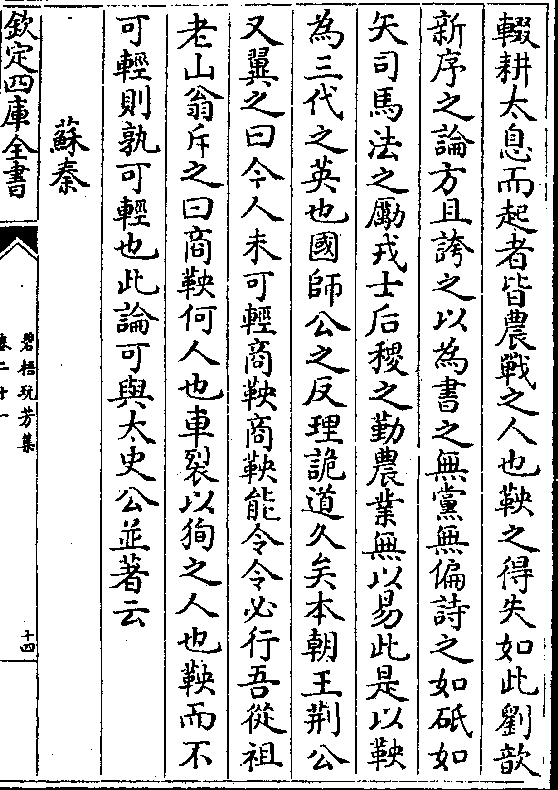 輟耕太息而起者皆農戰之人也鞅之得失如此劉歆
新序之論方且誇之以為書之無黨無偏詩之如砥如
矢司馬法之勵戎士后稷之勤農業無以易此是以鞅
為三代之英也國師公之反理詭道久矣本朝王荆公
又翼之曰今人未可輕商鞅商鞅能令令必行吾從祖
老山翁斥之曰商鞅何人也車裂以狥之人也鞅而不
可輕則孰可輕也此論可與太史公並著云
蘇秦
欽定四庫全書
碧梧玩芳集
卷二十一
十四